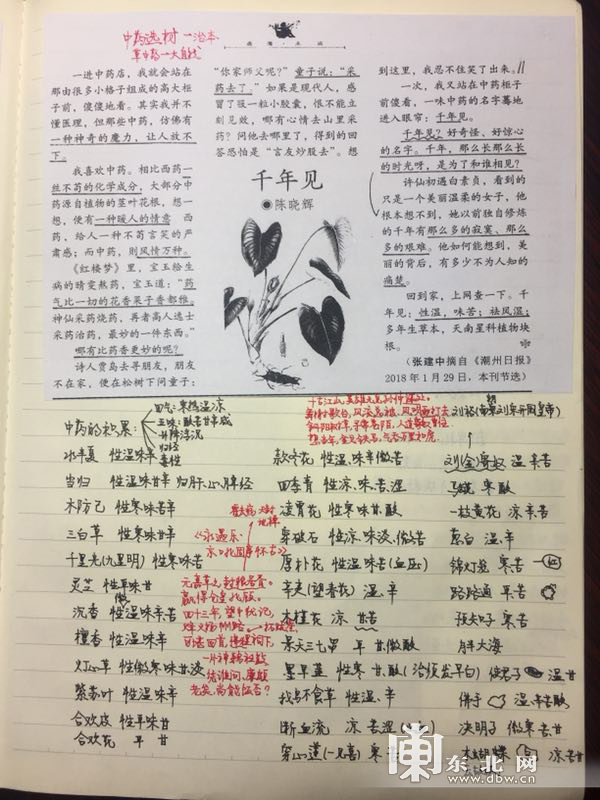 中药选树→治本
一进中药店，我就会站在
那由很多小格子组成的高大柜
子前，傻傻地看。其实我并不
懂医理，但那些中药，仿佛有
一种神奇的魔力，让人放不
下。
我喜欢中药。相比西药一
丝不苟的化学成分，大部分中
药源自植物的茎叶花根，想一
想，便有一种暖人的情意　西
药，给人一种不苟言笑的严
肃感；而中药，则风情万种。
《红楼梦》里，宝玉给生
病的晴雯熬药，宝玉道：“药
气比一切的花香果子香都雅。
神仙采药烧药，再者高人逸士
采药治药，最妙的一件东西。”
哪有比药香更妙的呢？
诗人贾岛去寻朋友，朋友
不在家，便在松树下问童子：
“你家师父呢？”童子说：“采
药去了。”如果是现代人，感
冒了服一粒小胶囊，恨不能立
刻见效，哪有心情去山里采
药？问他去哪里了，得到的回
答恐怕是“言友炒股去”。想
千年见
●陈晓辉
到这里，我忍不住笑了出来。
一次，我又站在中药柜子
前傻看，一味中药的名字蓦地
进入眼帘：千年见。
千年见？好奇怪、好惊心
的名字。千年，那么长那么长
的时光呀，是为了和谁相见？
许仙初遇白素贞，看到的
只是一个美丽温柔的女子，他
根本想不到，她以前独自修炼
的千年有那么多的寂寞、那么
多的艰难。他如何能想到，美
丽的背后，有多少不为人知的
痛楚。
回到家，上网查一下。千
年见：性温，味苦；祛风湿；
多年生草本，天南星科植物块
根。
（张建中摘自《潮州日报》
2018年1月29日，本刊节选）
中药的积累：
四气：寒热温凉
五味：酸苦甘辛咸
升降浮沉
归经
毒性
千古江山，英雄无觅，孙仲谋处。
舞榭歌台，风流总被，雨打风吹去
斜阳草树，寻常巷陌，人道寄奴曾住
想当年，金戈铁马，气吞万里如虎
水半夏 性温味辛
当归 性温味甘辛 归肝、心、脾经
木防己 性寒味苦辛
三白草 性寒味甘辛
千里光(九里明) 性寒味苦
灵芝 性平味甘
沉香 性微温味辛苦
檀香 性温味辛
灯心草 性微寒味甘淡
紫苏叶 性温味辛
合欢皮 性平味甘
合欢花 平 甘
《永遇乐·
京口北固亭怀古》
元嘉草草，封狼居胥，
赢得仓皇北顾。
四十三年，望中犹记，
烽火扬州路
可堪回首，佛狸祠下，
一片神鸦社鼓
凭谁问：廉颇
老矣，尚能饭否？
款冬花 性温、味辛微苦
四季青 性凉、味苦涩
凌霄花 性寒味甘、酸
穿破石 性凉、味淡、微苦
厚朴花 性温味苦
辛夷(望春花) 温、辛
木槿花 凉 甘苦
景天三七 平 甘微酸
墨旱莲 性寒 甘、酸(治须发早白)
找不食草 性温、辛
断血流 凉 苦涩
穿心莲(一见喜) 寒 苦
刘寄奴 温 辛苦
马鞭 寒 酸
一枝黄花 凉 辛苦
薤白 温、辛
锦灯笼 寒 苦
路路通 平 苦
预知子 寒 苦
胖大海
使君子 温 甘
佛手 温、辛苦酸
决明子 微寒 苦甘
木蝴蝶 凉 苦甘
东北网
www.dbw.cn